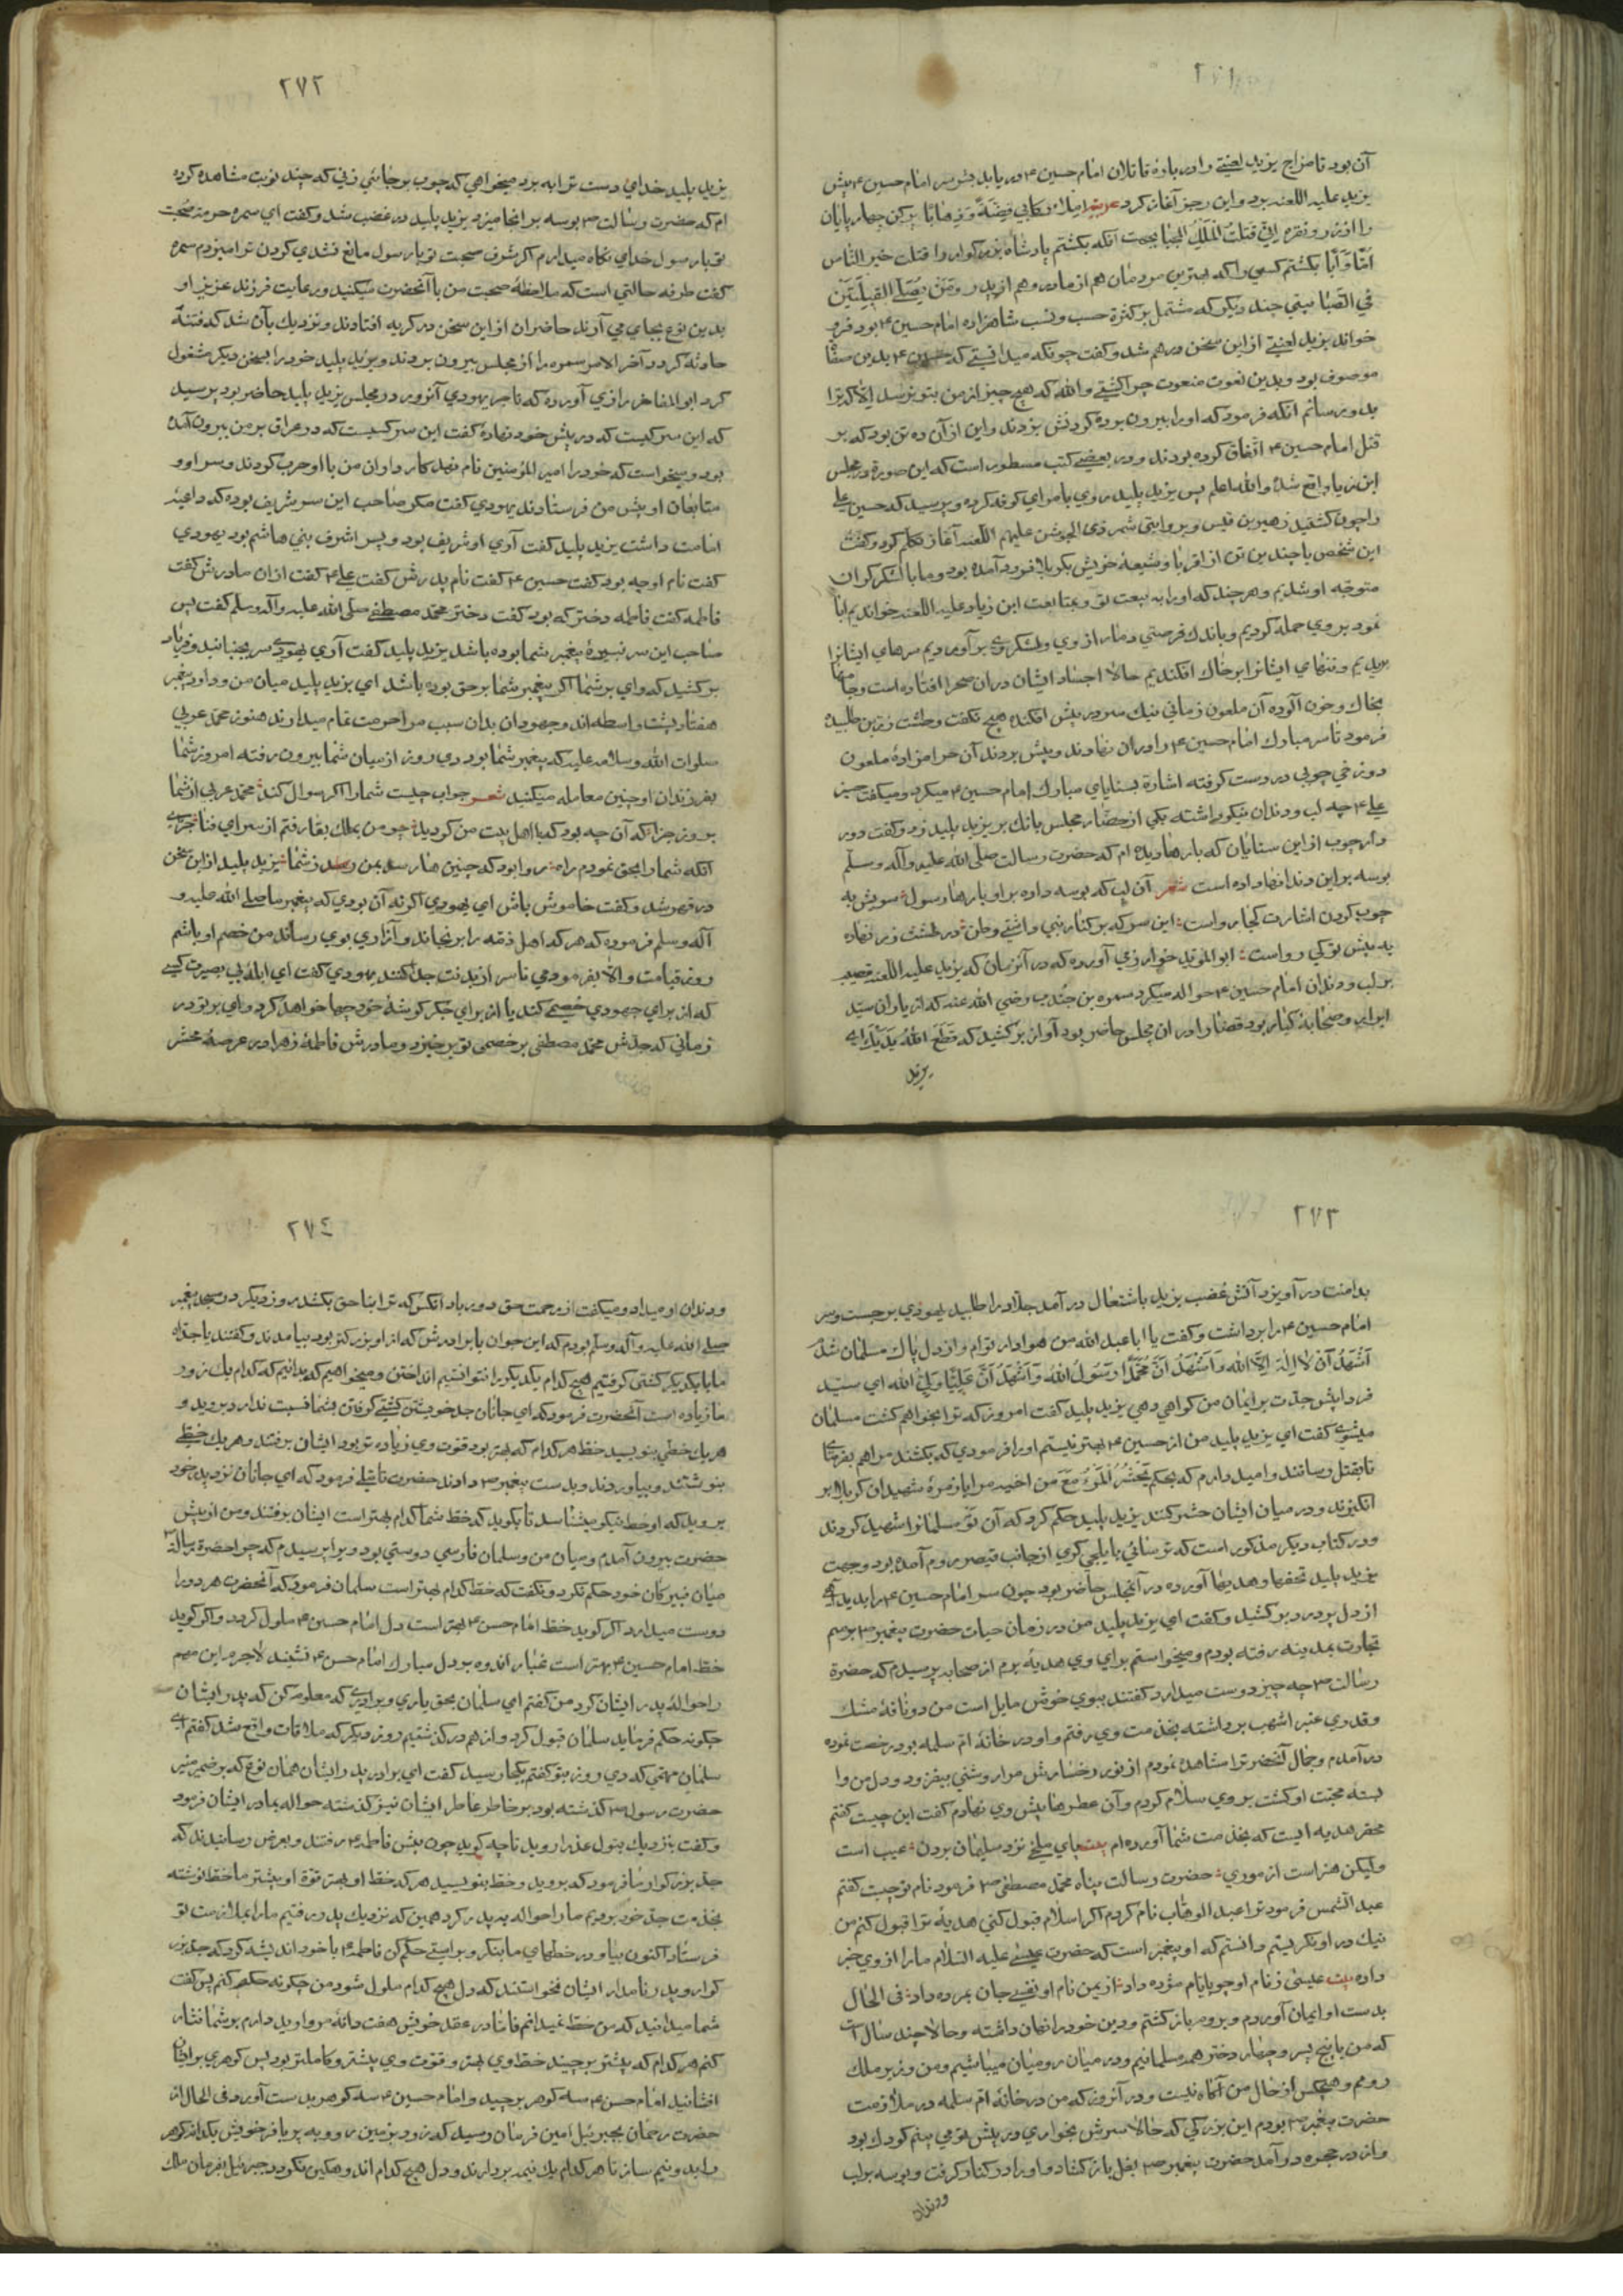 ٢٧١
آن بود تا مزاج یزید لعنتی را در باره قاتلان امام حسین ۴ در یابد پس سر امام حسین ۴ پیش
یزید علیه اللعنه بود و این رجز آغاز کرد عربیه املاء رکابی فضة و ذهابا پر کن چهارپایان
را از زر و نقره انی قتلت الملک المحجبا بجهت آنکه بکشتم پادشاه بزرکوار را قتلت خیر الناس
اما و ابا بکشتم کسی را که بهترین مردمان هم از مادر و هم از پدر و من یصلی القبلتین
في الصبا بیتی چند دیکر که مشتمل بر کثرة حسب و نسب شاهزاده امام حسین ۴ بود فرو
خواند یزید لعنتی از این سخن درهم شد و کفت چونکه میدانستی که حسین ۴ بدین صفا
موصوف بود و بدین نعوت منعوت چرا کشتی والله که هیچ چیز از من بتو نرسد الا که ترا
بدو رسانم آنکه فرمود که او را بیرون برده کردنش بزدند و این از آن ده تن بود که بر
قتل امام حسین ۴ اتفاق کرده بودند و در بعضی کتب مسطور است که این صورة در مجلس
ابن زیاد واقع شد والله اعلم پس یزید پلید روی بامرای کوفه کرده و پرسید که حسین علی
را چون کشتید زهیر بن قیس و بروایتی شمر ذی الجوشن علیهم اللعنه آغاز تکلم کرد و کفت
این شخص با چندین تن از اقربا و شیعۀ خویش بکربلا فرود آمده بود و ما با لشکر کران
متوجه او شدیم و هر چند که او را به بیعت تو و بمتابعت ابن زیاد علیه اللعنه خواندیم ابا
نمود بروی حمله کردیم و باندك فرصتی دمار از وی و لشکر وی برآوردیم سرهای ایشانرا
بریدیم و تنهای ایشانرا بر خاك افکندیم حالا اجساد ایشان دران صحرا افتاده است و جامها
بخاك و خون آلوده آن ملعون زمانی نیك سر در پیش افکنده هیچ نکفت و طشت زرین طلبیده
فرمود تا سر مبارك امام حسین ۴ را دران نهادند و پیش بردند آن حرامزادۀ ملعون
دوزخی چوبی در دست کرفته اشارة بثنایای مبارك امام حسین ۴ میکرد و میکفت حسین
علی ۴ چه لب و دندان نیکو داشته یکی از حضار مجلس بانك بر یزید پلید زد و کفت دور
دار چوب از این سنایان که بارها دیده ام که حضرت رسالت صلی الله علیه وآله وسلم
بوسه بر این دندانها داده است شعر آن لب که بوسه داده بر او بارها رسول سویش به
چوب کردن اشارت کجا رواست این سر که بر کنار نبی داشتی وطن در طشت زر نهاده
به پیش تو کی رواست ابوالموید خوارزمی آورده که در آنزمان که یزید علیه اللعنه قضیب
بر لب و دندان امام حسین ۴ حواله میکرد سمره بن جندب رضی الله عنه که از یاران سید
ابرار و صحابۀ کبار بود قضا را در ان مجلس حاضر بود آواز برکشید که قطع الله یدیك ای
یزید
٢٧٢
یزید پلید خدای دست ترا به برد میخواهی که چوب بر جائی زنی که چند نوبت مشاهده کرده
ام که حضرت رسالت ص بوسه بر انجا میزد یزید پلید در غضب شد و کفت ای سمره حرمت صحبت
تو با رسول خدای نکاه میدارم اکر شرف صحبت تو با رسول مانع نشدی کردن ترا میزدم سمره
کفت طرفه حالتی است که ملاحظۀ صحبت من با آنحضرت میکنید و رعایت فرزند عزیز او
بدین نوع بجای می آرند حاضران از این سخن در کریه افتادند و نزدیك بآن شد که فتنۀ
حادثه کردد آخر الامر سمره را از مجلس بیرون بردند و یزید پلید خود را بسخن دیکر مشغول
کرد ابوالمفاخر رازی آورده که تاجر یهودی آنروز در مجلس یزید پلید حاضر بود پرسید
که این سر کیست که در پیش خود نهادۀ کفت این سر کسیست که در عراق بر من بیرون آمده
بود و میخواست که خود را امیر المؤمنین نام نهد کارداران من با او حرب کردند و سر او و
متابعان او پیش من فرستادند یهودی کفت مکر صاحب این سر شریف بوده که داعیۀ
امامت داشت یزید پلید کفت آری او شریف بود و پسر اشرف بنی هاشم بود یهودی
کفت نام او چه بود کفت حسین ۴ کفت نام پدرش کفت علی ۴ کفت ازان مادرش کفت
فاطمه کفت فاطمه دختر که بود کفت دختر محمد مصطفی صلی الله علیه وآله وسلم کفت پس
صاحب این سر نبیرۀ پیغمبر شما بوده باشد یزید پلید کفت آری یهودی سر بجنبانید و فریاد
برکشید که وای بر شما اکر پیغمبر شما بر حق بوده باشد ای یزید پلید میان من و داود پیغمبر
هفتاد پشت واسطه اند و جهودان بدان سبب مرا حرمت تمام میدارند هنوز محمد عربی
صلوات الله وسلامه علیه که پیغمبر شما بود دی روز از میان شما بیرون رفته امروز شما
بفرزندان او چنین معامله میکنید شعر جواب چیست شما را اکر سوال کند محمد عربی از شما
بروز جزا که آن چه بود که با اهل بیت من کردید چو من بملك بقا رفتم از سرای فنا جزای
آنکه شما را بحق نمودم راه روا بود که چنین ها رسد بمن ز شما یزید پلید از این سخن
در قهر شد و کفت خاموش باش ای یهودی اکر نه آن بودی که پیغمبر ما صلی الله علیه و
آله وسلم فرموده که هر که اهل ذمه را برنجاند و آزاری بوی رساند من خصم او باشم
روز قیامت والا بفرمودمی تا سر از بدنت جدا کنند یهودی کفت ای ابله بی بصیرت کسی
که از برای جهودی خصمی کند یا از برای جکرکوشۀ خود چها خواهد کرد وای بر تو در
زمانی که جدش محمد مصطفی بر خصمی تو برخیزد و مادرش فاطمۀ زهرا در عرصۀ محشر
٢٧٣
بدامنت درآویزد آتش غضب یزید باشتعال درآمد جلاد را طلبید یهودی برجست و سر
امام حسین ۴ را برداشت و کفت یا ابا عبد الله من هوادار توام و از دل پاك مسلمان شدم
اشهد ان لا اله الا الله و اشهد ان محمدا رسول الله و اشهد ان علیا ولی الله ای سید
فردا پیش جدت بر ایمان من کواهی دهی یزید پلید کفت امروز که ترا بخواهم کشت مسلمان
میشوی کفت ای یزید پلید من از حسین ۴ بهتر نیستم او را فرمودی که بکشند مرا هم بفرمای
تا بقتل رسانند و امید دارم که بحکم یحشر المرء مع من احب مرا با زمرۀ شهیدان کربلا بر
انکیزند و در میان ایشان حشر کنند یزید پلید حکم کرد که آن نو مسلمانرا شهید کردند
و در کتاب دیکر مذکور است که ترسائی بایلچی کری از جانب قیصر روم آمده بود و جهت
یزید پلید تحفها و هدیها آورده در آنمجلس حاضر بود چون سر امام حسین ۴ را بدید آهی
از دل پر درد برکشید و کفت ای یزید پلید من در زمان حیات حضرت پیغمبر ص برسم
تجارت بمدینه رفته بودم و میخواستم برای وی هدیۀ برم از صحابه پرسیدم که حضرة
رسالت ص چه چیز دوست میدارد کفتند ببوی خوش مایل است من دو نافۀ مشك
و قدری عنبر اشهب برداشته بخدمت وی رفتم و او در خانۀ ام سلمه بود رخصت نموده
درآمدم و جمال آنحضرترا مشاهده نمودم از نور رخسارش مرا روشنی بیفزود و دل من وا
بستۀ محبت او کشت بر وی سلام کردم و آن عطرها پیش وی نهادم کفت این چیست کفتم
محقر هدیه ایست که بخدمت شما آورده ام بیت پای ملخی نزد سلیمان بردن عیب است
ولیکن هنر است از موری حضرت رسالت پناه محمد مصطفی ص فرمود نام تو چیست کفتم
عبد الشمس فرمود ترا عبد الوهاب نام کردم اکر اسلام قبول کنی هدیۀ ترا قبول کنم من
نیك در او نکریستم دانستم که او پیغمبر است که حضرت عیسی علیه السلام ما را از وی خبر
داده بیت عیسی ز نام او چو پایام مژده داد از یمن نام او نفسی جان بمرده داد فی الحال
بدست او ایمان آوردم و بروم باز کشتم و دین خود را نهان داشته و حالا چند سال است
که من با پنج پسر و چهار دختر همه مسلمانیم و در میان رومیان میباشیم و من وزیر ملك
رومم و هیچکس از حال من آکاه نیست و در آنروز که من در خانۀ ام سلمه در ملازمت
حضرت پیغمبر ص بودم این بزرکی که حالا سرش بخواری در پیش تو می بینم کودك بود
و از در حجره درآمد حضرت پیغمبر ص بغل باز کشاد و او را در کنار کرفت و بوسه بر لب
و دندان
٢٧٤
و دندان او میداد و میکفت از رحمت حق دور باد انکس که ترا بناحق بکشد روز دیکر در مسجد پیغمبر
صلی الله علیه وآله وسلم بودم که این جوان با برادرش که از او بزرکتر بود بیامدند و کفتند یا جداه
ما با یکدیکر کشتی کرفتیم هیچ کدام یکدیکر را نتوانستیم انداختن و میخواهیم که بدانیم که کدام یك زور
ما زیاده است آنحضرت فرمود که ای جانان جد خویش کشتی کرفتن بشما نسبت ندارد بروید و
هر یك خطی بنویسید خط هر کدام که بهتر بود قوت وی زیاده تر بود ایشان برفتند و هر یك خطی
بنوشتند و بیاوردند و بدست پیغمبر ص دادند حضرت تاملی فرمود که ای جانان نزد پدر خود
بروید که او خط نیکو میشناسد تا بکوید که خط شما کدام بهتر است ایشان برفتند و من از پیش
حضرت بیرون آمدم و میان من و سلمان فارسی دوستی بود ویرا پرسیدم که چرا حضرة رسالة ص
میان نبیرکان خود حکم نکرد و نکفت که خط کدام بهتر است سلمان فرمود که آنحضرت هر دو را
دوست میدارد اکر کوید خط امام حسن ۴ بهتر است دل امام حسین ۴ ملول کردد و اکر کوید
خط امام حسین ۴ بهتر است غبار اندوه بر دل مبارك امام حسن ۴ نشیند لاجرم این مهم
را حوالۀ پدر ایشان کرد من کفتم ای سلمان بحق یاری و برادری که معلوم کن که پدر ایشان
چکونه حکم فرماید سلمان قبول کرد و از هم درکذشتیم روز دیکر که ملاقات واقع شد کفتم ای
سلمان مهمی که دی روز بتو کفتم بکجا رسید کفت ای برادر پدر ایشان همان نوع که بر ضمیر منیر
حضرت رسول ص کذشته بود بر خاطر عاطر ایشان نیز کذشته حواله بمادر ایشان فرمود
و کفت بنزدیك بتول عذرا روید تا چه کوید چون پیش فاطمه ۴ رفتند و بعرض رسانیدند که
جد بزرکوار ما فرمود که بروید و خط بنویسید هر که خط او بهتر قوة او بیشتر ما خط نوشته
بخدمت جد خود بردیم ما را حواله به پدر کرد همین که نزدیك پدر رفتیم ما را بملازمت تو
فرستاد اکنون بیا و در خطهای ما بنکر و براستی حکم کن فاطمه ۴ با خود اندیشه کرد که جد بزر
کوار و پدر نامدار ایشان نخواستند که دل هیچ کدام ملول شود من چکونه حکم کنم پس کفت
شما میدانید که من خط نمیدانم فاما در عقد خویش هفت دانه مروارید دارم بر شما نثار
کنم هر کدام که بیشتر برچیند خط وی بهتر و قوت وی بیشتر و کاملتر بود پس کوهری بر ایشان
افشانید امام حسن ۴ سه کوهر برچید و امام حسین ۴ سه کوهر بدست آورد فی الحال از
حضرت رحمان بجبرئیل امین فرمان رسید که زود بزمین رو و به پر بافر خویش یکدانه کوهر
را بدو نیم ساز تا هر کدام یك نیمه بردارند و دل هیچ کدام اندوهکین نکردد جبرئیل بفرمان ملك